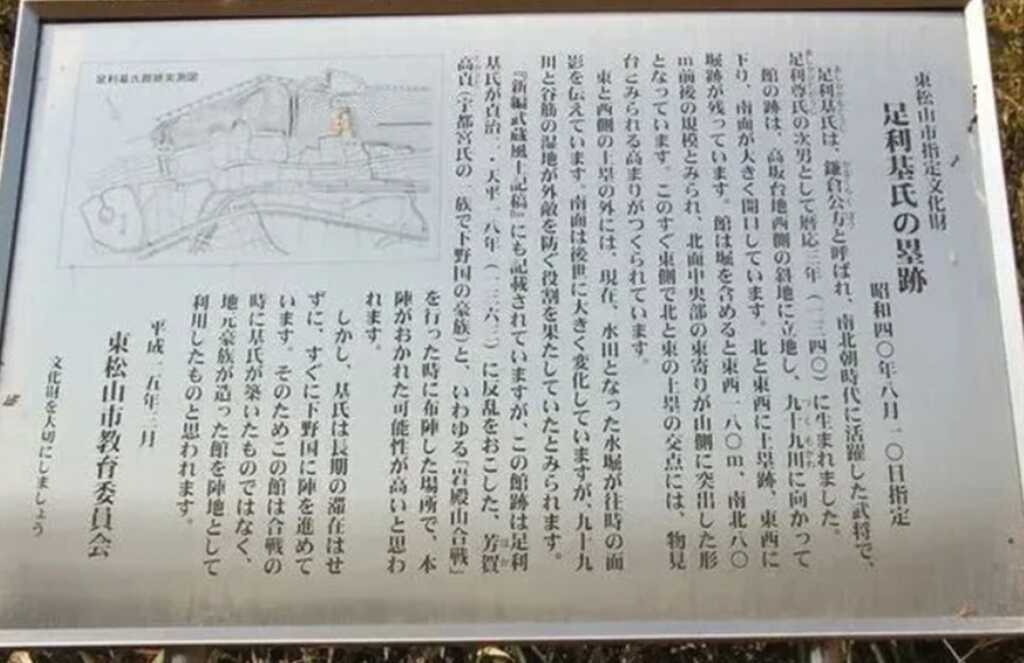 東松山市指定文化財
足利基氏の塁跡
昭和四〇年八月一〇日指定
足利基氏は、鎌倉公方と呼ばれ、南北朝時代に活躍した武将で、
足利尊氏の次男として暦応三年(一三四〇)に生まれました。
館の跡は、高坂台地西側の斜地に立地し、九十九川に向かって
下り、南面が大きく開口しています。北と東西に土塁跡、東西に
堀跡が残っています。館は堀を含めると東西一八〇m、南北八〇
m前後の規模とみられ、北面中央部の東寄りが山側に突出した形
となっています。このすぐ東側で北と東の土塁の交点には、物見
台とみられる高まりがつくられています。
東と西側の土塁の外には、現在、水田となった水堀が往時の面
影を伝えています。南面は後世に大きく変化していますが、九十九
川と谷筋の湿地が外敵を防ぐ役割を果たしていたとみられます。
『新編武蔵風土記稿』にも記載されていますが、この館跡は足利
基氏が貞治二・天平一八年(一三六三)に反乱をおこした、芳賀
高貞(宇都宮氏の一族で下野国の豪族)と、いわゆる『岩殿山合戦』
を行った時に布陣した場所で、本
陣がおかれた可能性が高いと思わ
れます。
しかし、基氏は長期の滞在はせ
ずに、すぐに下野国に陣を進めて
います。そのためこの館は合戦の
時に基氏が築いたものではなく、
地元豪族が造った館を陣地として
利用したものと思われます。
平成一五年三月
東松山市教育委員会
文化財を大切にしましょう
足利基氏館跡実測図